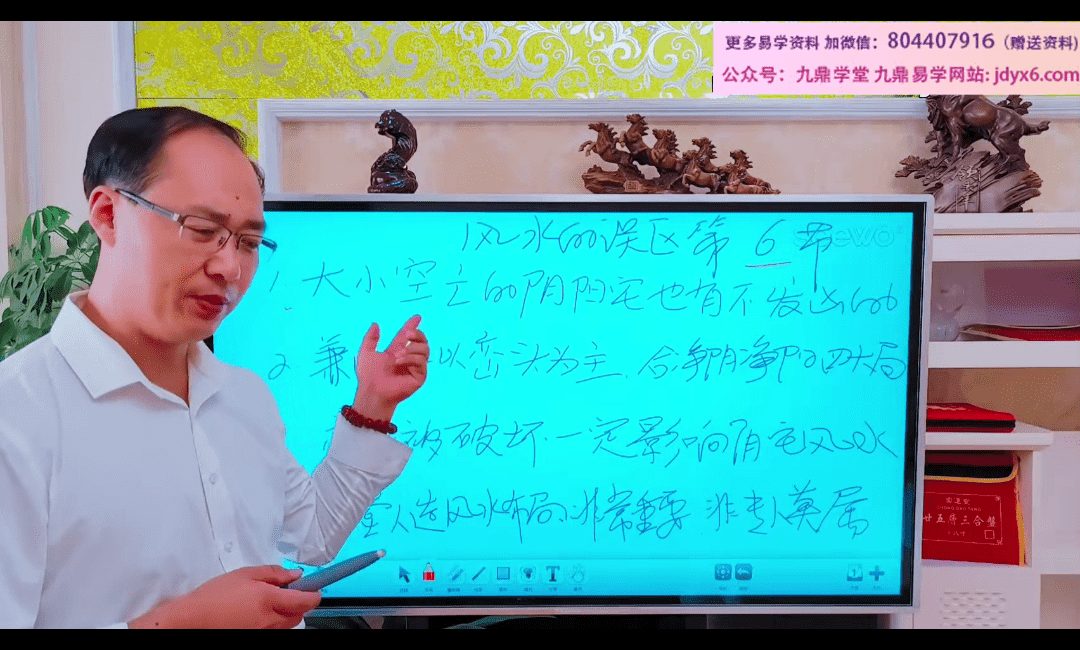 更多易学资料 加微信：804407916（赠送资料）
公众号：九鼎学堂 九鼎易学网站: jdyx6.com
风水的误区第6节
1. 大小空亡的阴阳宅也有不发凶的
2 兼 以峦头为主. 合净阴净阳四大局
被破坏.一定影响阴宅风水
人造风水布局.非常重要.非专人莫属
廿五层三合盘